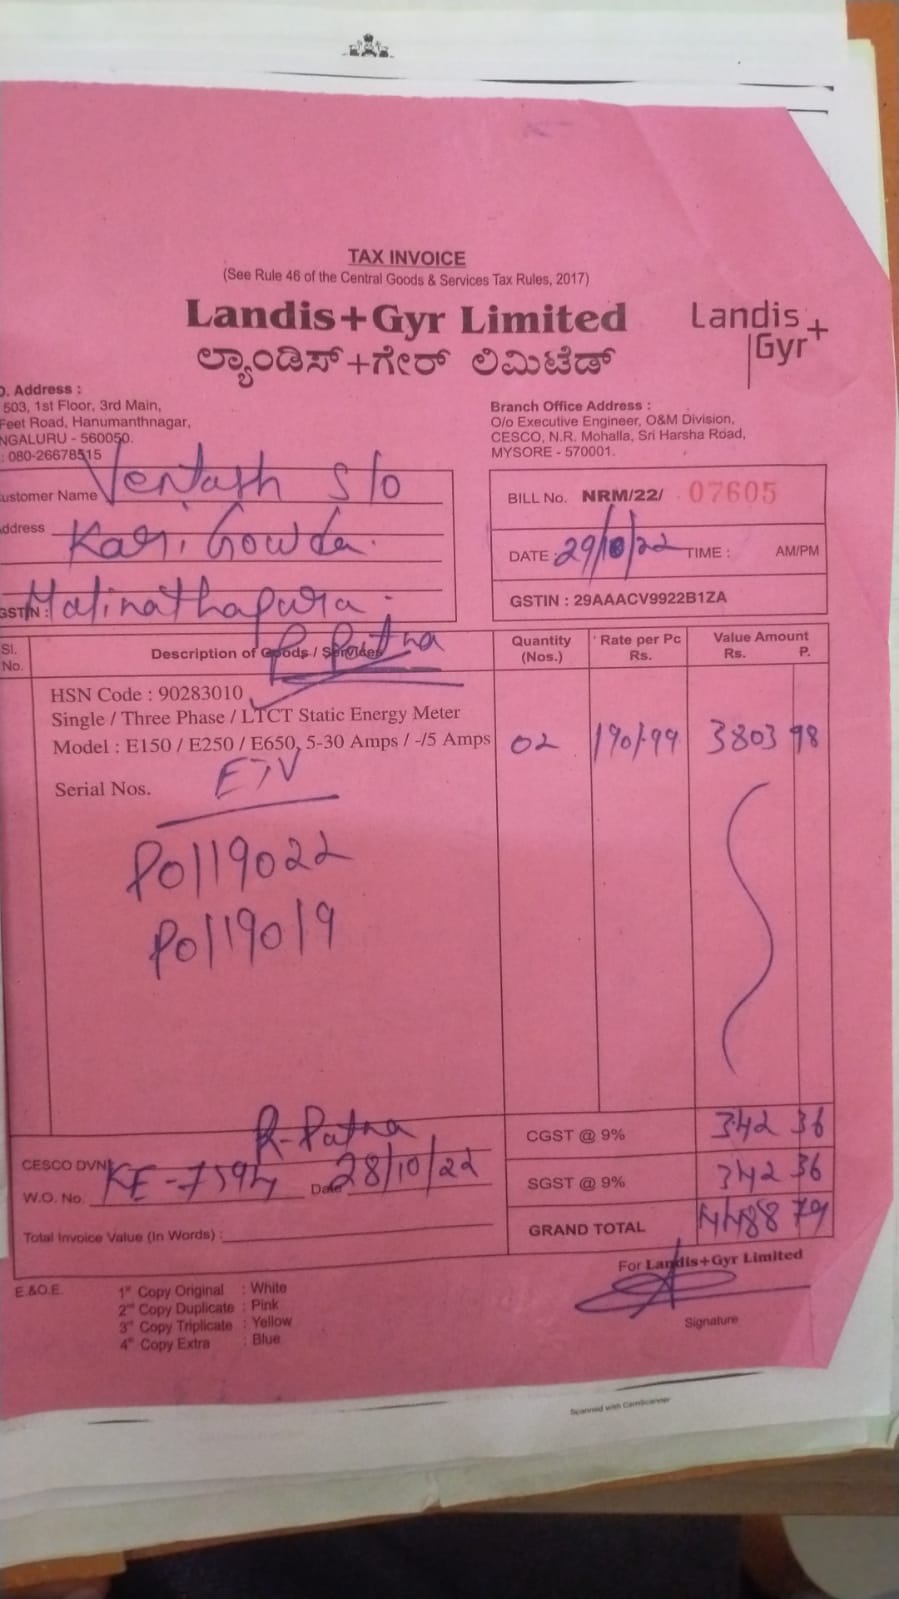 TAX INVOICE
(See Rule 46 of the Central Goods & Services Tax Rules, 2017)
Landis+Gyr Limited
ಲ್ಯಾಂಡಿಸ್+ಗೇರ್ ಲಿಮಿಟೆಡ್
Landis
Gyr+
O. Address :
503, 1st Floor, 3rd Main,
Feet Road, Hanumanthnagar,
NGALURU - 560050.
: 080-26678515
Branch Office Address :
O/o Executive Engineer, O&M Division,
CESCO, N.R. Mohalla, Sri Harsha Road,
MYSORE - 570001.
ustomer Name Ventash S/o
ddress Kari Gowda.
GSTIN : Matinathapura.
R-Patna
BILL No. NRM/22/ 07605
DATE : 29/10/22 TIME : AM/PM
GSTIN : 29AAACV9922B1ZA
Sl. No. Description of Goods / Services Quantity (Nos.) Rate per Pc Rs. Value Amount Rs. P.
HSN Code : 90283010
Single / Three Phase / LTCT Static Energy Meter
Model : E150 / E250 / E650, 5-30 Amps / -/5 Amps 02 1901-99 3803 98
Serial Nos. ETV
P0119022
P0119019
R-Patna
CESCO DVN
W.O. No. KE-7594 Date 28/10/22
Total Invoice Value (In Words) :
CGST @ 9% 342 36
SGST @ 9% 342 36
GRAND TOTAL 4488 79
For Landis+Gyr Limited
Signature
E.&O.E. 1st Copy Original : White
2nd Copy Duplicate : Pink
3rd Copy Triplicate : Yellow
4th Copy Extra : Blue
Scanned with CamScanner